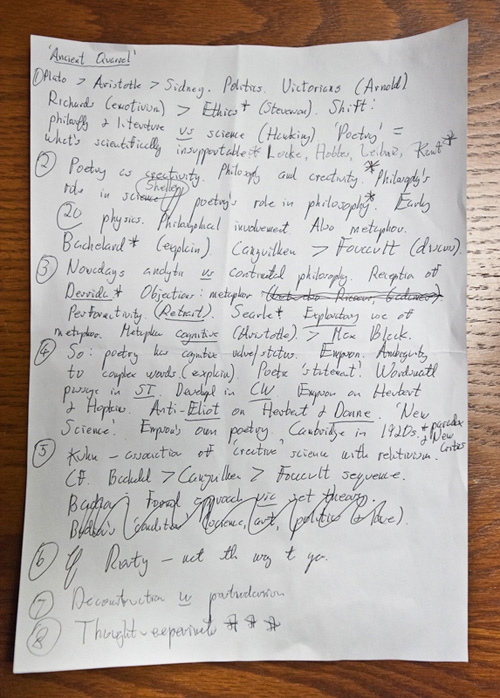 'Ancient Quarrel'
① Plato > Aristotle > Sidney. Politics. Victorians (Arnold)
Richards (emotivism) > Ethics* (Stevenson). Shift:
philosophy & literature vs science (Hawking) 'Poetry' =
what's scientifically insupportable* Locke, Hobbes, Leibniz, Kant*
② Poetry as creativity. Philosophy and creativity.* Philosophy's
role in science Shelley poetry's role in philosophy.* Early
20 physics. Philosophical involvement Also metaphor.
Bachelard* (explain) Canguilhem > Foucault (discuss).
③ Nowadays analytic vs continental philosophy. Reception of
Derrida* Objections: metaphor
Performativity. (Retrait). Searle* Exploratory use of
metaphor. Metaphor cognitive (Aristotle) > Max Black.
④ So: poetry has cognitive value/status. Empson. Ambiguity
to complex words (explain). Poetic 'statement'. Wordsworth
passage in ST. Develop in CW Empson on Herbert
& Hopkins. Anti-Eliot on Herbert & Donne. 'New
Science'. Empson's own poetry. Cambridge in 1920s. * paradox
& New
Critics
⑤ Kuhn - association of 'creative' science with relativism.
Cf. Bachelard > Canguilhem > Foucault sequence.
Badiou: Formal approach via set theory.
Badiou's 'conditions' (science, art, politics & love).
⑥ Cf Rorty - not the way to go.
⑦ Deconstruction vs postmodernism
⑧ Thought-experiments * * *